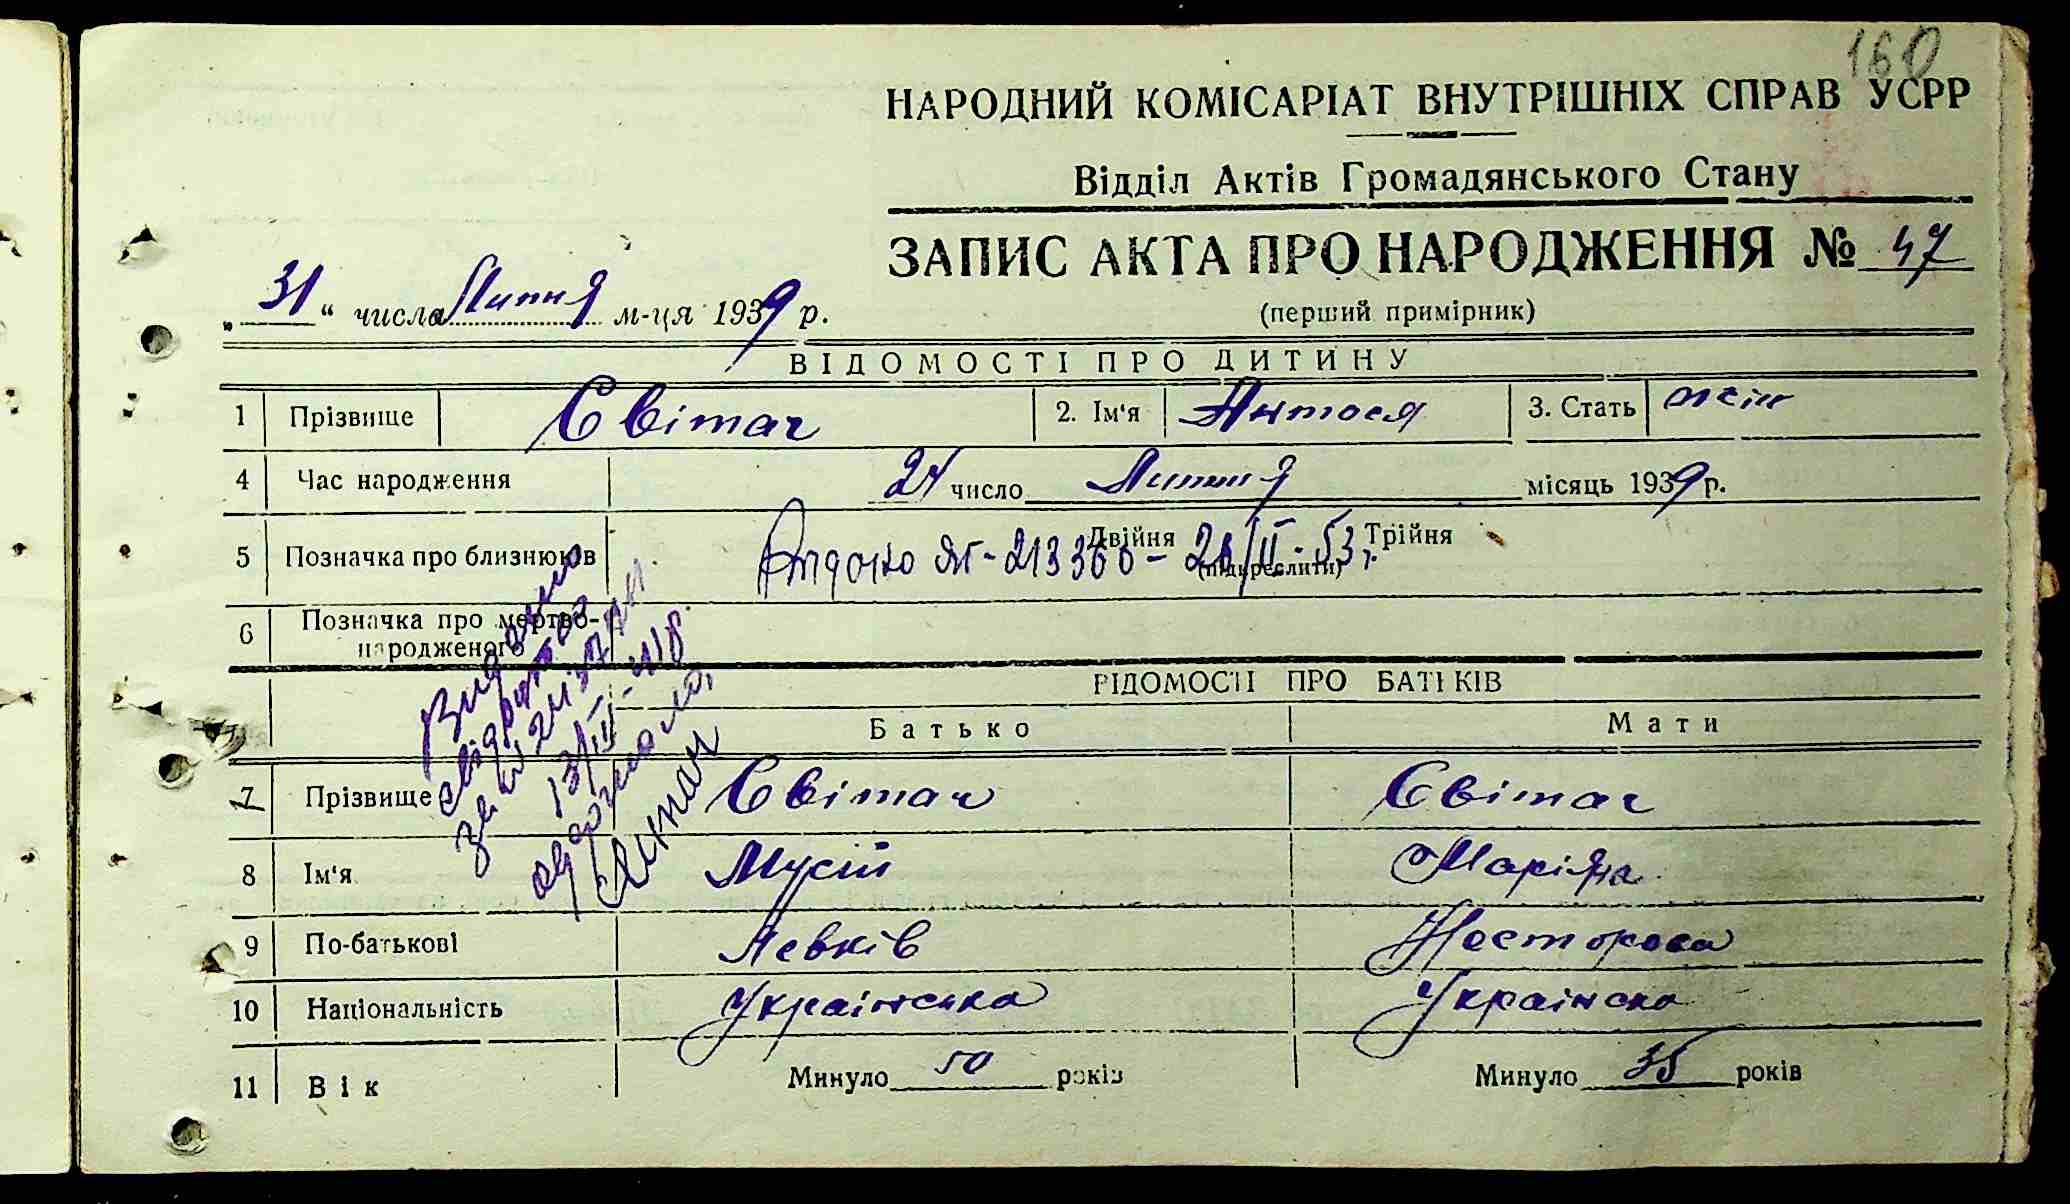 160
НАРОДНИЙ КОМІСАРІАТ ВНУТРІШНІХ СПРАВ УСРР
Відділ Актів Громадянського Стану
ЗАПИС АКТА ПРО НАРОДЖЕННЯ № 47
(перший примірник)
„31“ числа Липня м-ця 1939 р.
ВІДОМОСТІ ПРО ДИТИНУ
1 Прізвище Світач 2. Ім'я Антося 3. Стать жін
4 Час народження 24 число Липня місяць 1939 р.
5 Позначка про близнюків Двійня Трійня
(підкреслити)
ЯГ-213360 - /II-53 г.
6 Позначка про мертво-
народженого
Видано
свідоцтво
за
13/III-
ВІДОМОСТІ ПРО БАТЬКІВ
Батько Мати
7 Прізвище Світач Світач
8 Ім'я Мусій Маріяна
9 По-батькові Левків Несторова
10 Національність Українська Українска
11 Вік Минуло 50 років Минуло 35 років